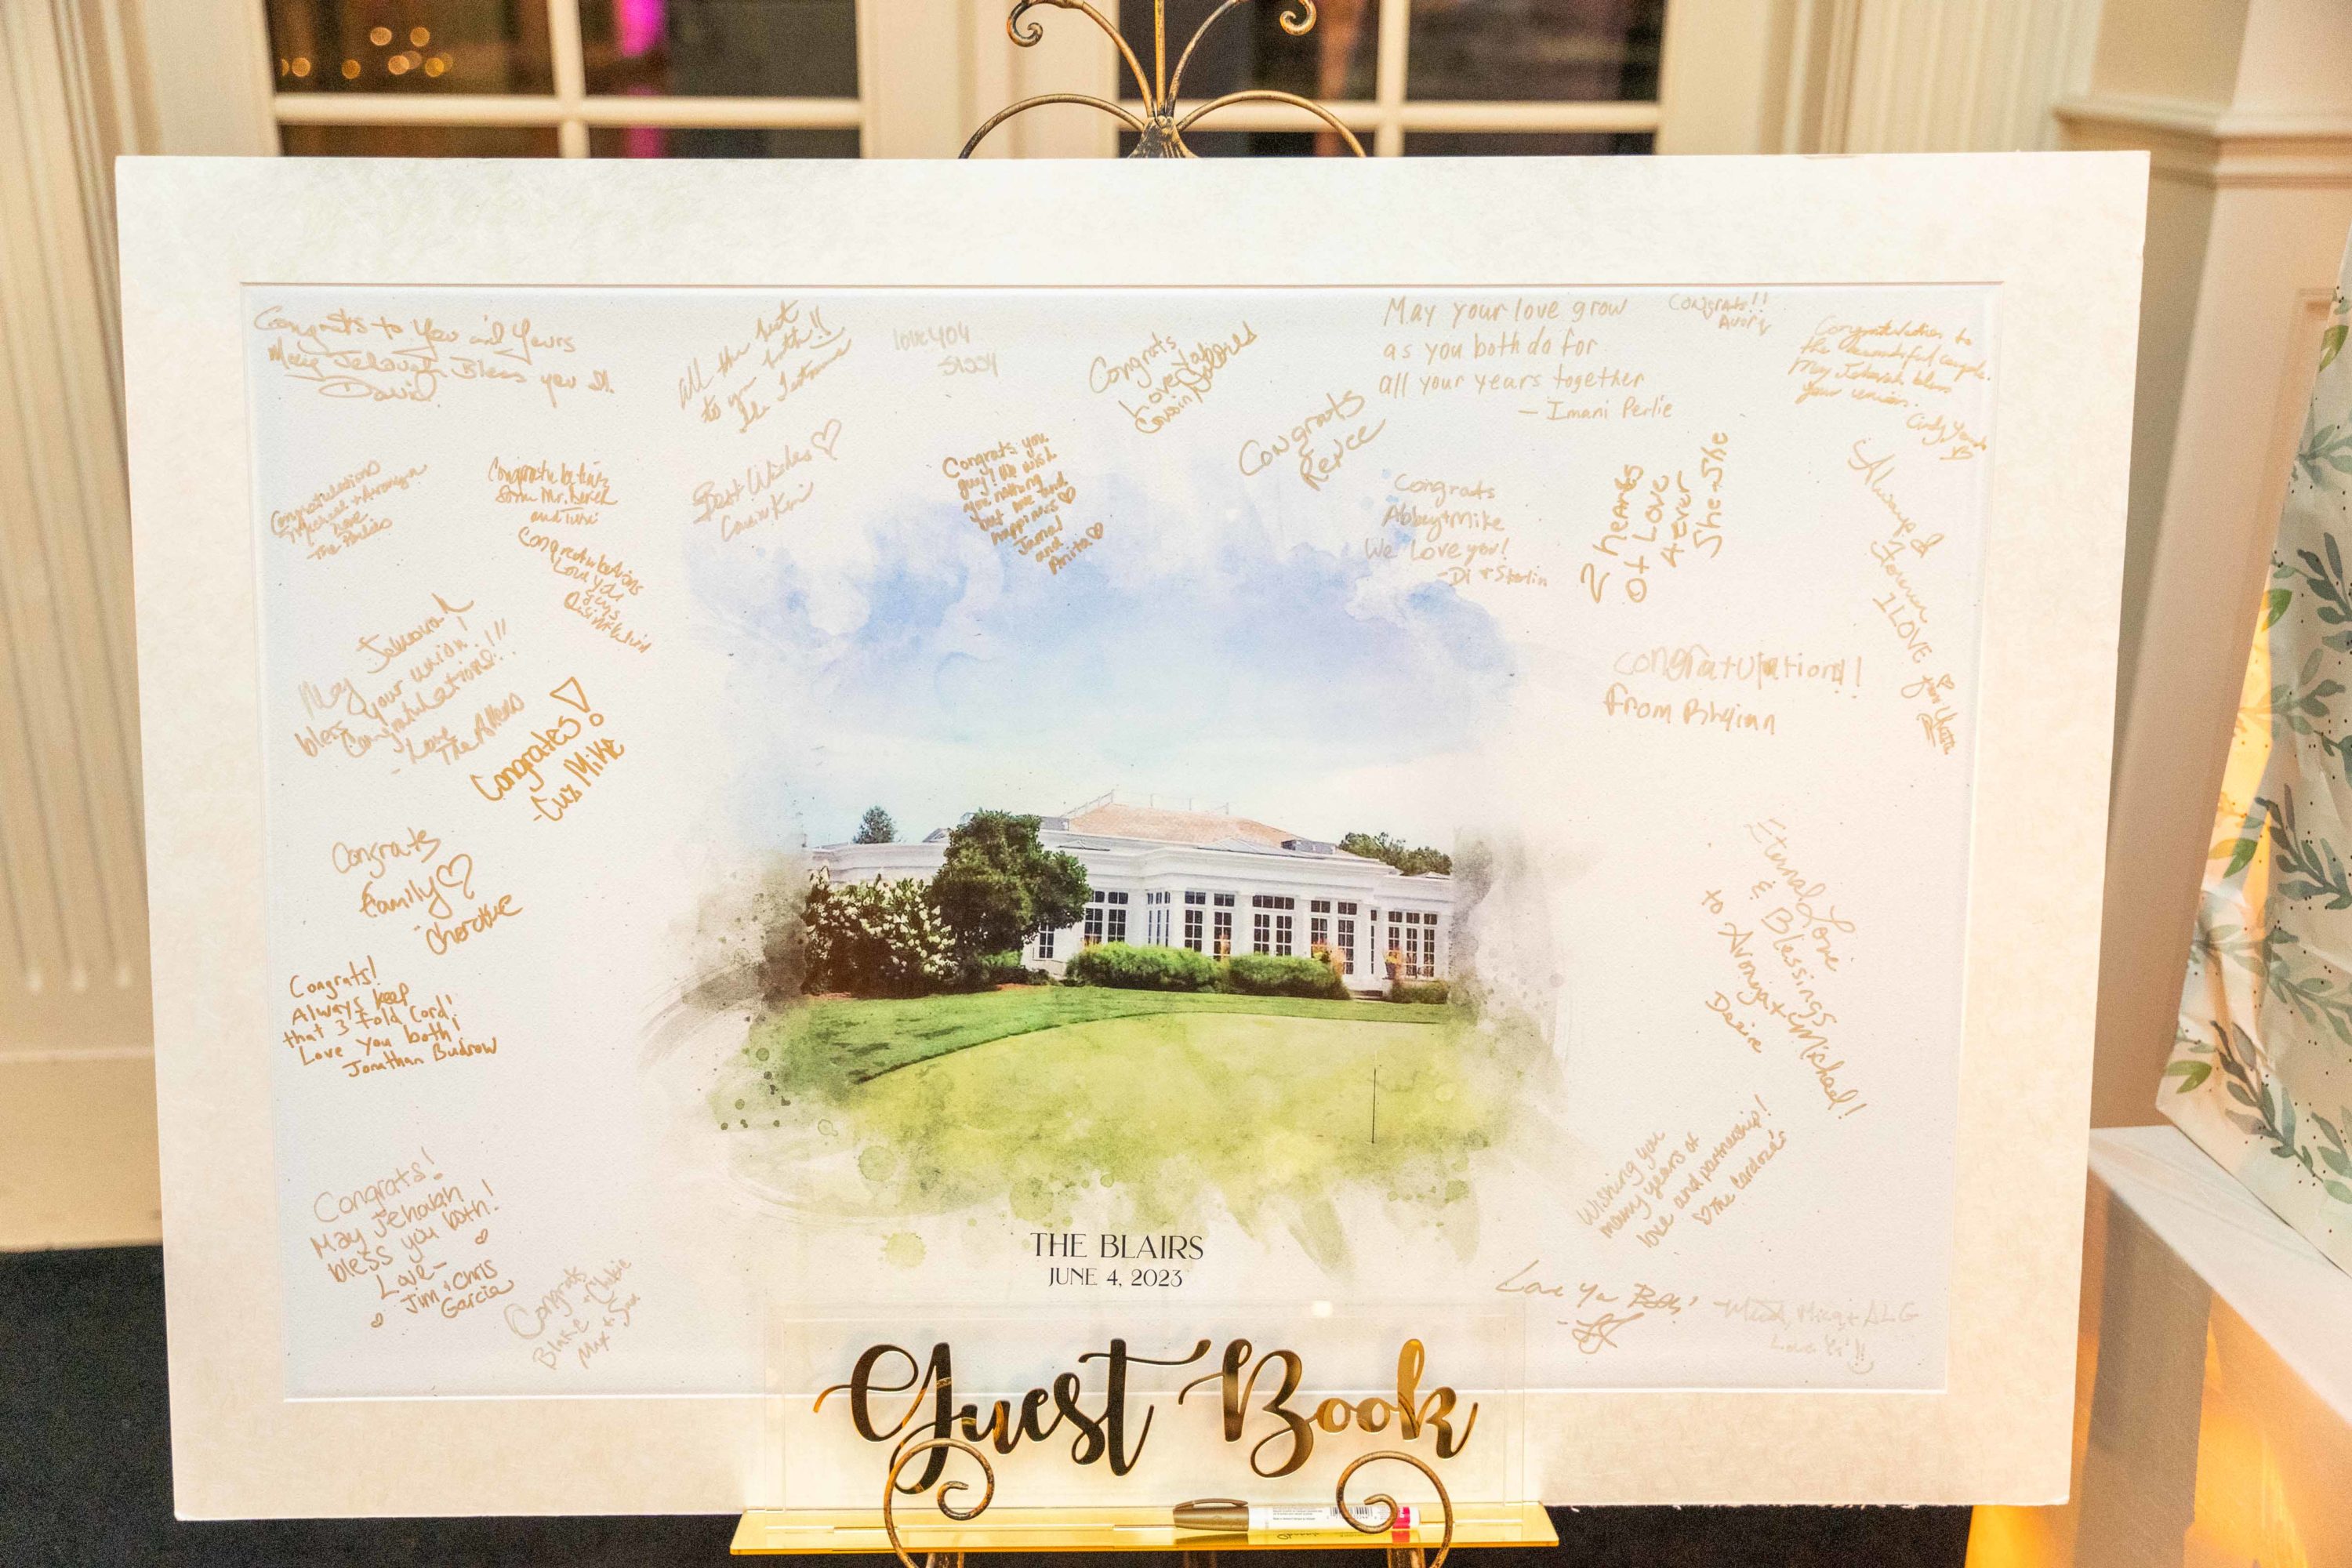 Congrats to You and Yours
May Jehovah Bless you
David
All the best
to you both!!
love 404
Congrats
Love
Cousin
May your love grow
as you both do for
all your years together
- Imani Perlie
Congrats!!
Avory
Congratulations to
the beautiful couple.
May Jehovah bless
your union.
Cindy
Congratulations
Love
The Perlies
Congratulations
from Mr. Derek
and
Best Wishes ♡
Cousin Kim
Congrats you
guys! We wish
you nothing
but love and
happiness ♡
Jamal
and
Anita ♡
Congrats
Renee
Congrats
Abbey + Mike
We love you!
- Di + Sterlin
2 hearts
of Love
4 ever
She-She
Always &
Forever
I LOVE
Congratulations
Love you
guys
May Jehovah
bless your union!
Congratulations!!!
- Love
The Allens
Congrates!
- Cuz Mike
Congratulations!!
From
Congrats
family ♡
Cherokee
Congrats!
Always keep
that 3 fold Cord!
Love you both!
Jonathan Budrow
Eternal Love
& Blessings
to Aronya + Michael!
Daire
Congrats!
May Jehovah
bless you both!
Love -
Jim + Chris
Garcia
Congrats
Blake +
Max +
Wishing you
many years of
love and partnership!
♡ The Cardoza's
Love You Both!
ALG
THE BLAIRS
JUNE 4, 2023
Guest Book